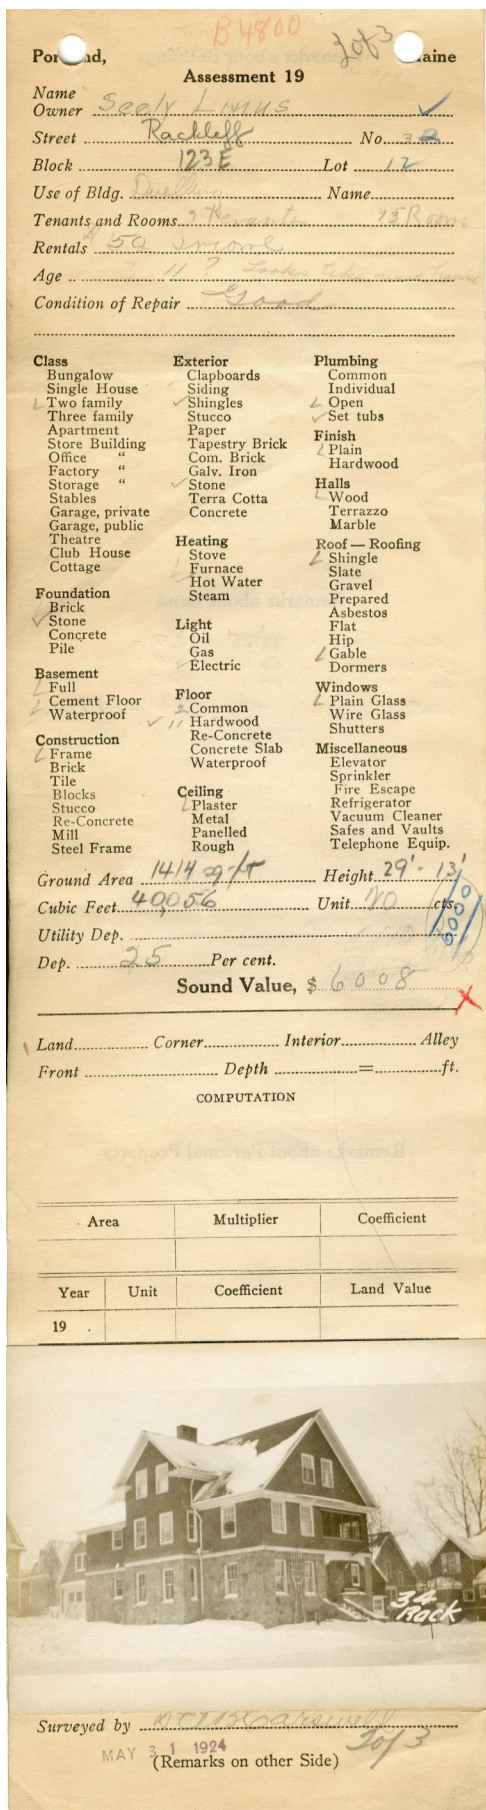 B4800
2 of 3
Por nd, aine
Assessment 19
Name
Owner Seely Linus
Street Rackleff No. 32
Block 123E Lot 12
Use of Bldg. Dwelling Name
Tenants and Rooms 2 Tenants 15 Rooms
Rentals $50 Income
Age 11? Looks like new house
Condition of Repair Good
Class
Bungalow
Single House
Two family
Three family
Apartment
Store Building
Office "
Factory "
Storage "
Stables
Garage, private
Garage, public
Theatre
Club House
Cottage
Foundation
Brick
Stone
Concrete
Pile
Basement
Full
Cement Floor
Waterproof
Construction
Frame
Brick
Tile
Blocks
Stucco
Re-Concrete
Mill
Steel Frame
Exterior
Clapboards
Siding
Shingles
Stucco
Paper
Tapestry Brick
Com. Brick
Galv. Iron
Stone
Terra Cotta
Concrete
Heating
Stove
Furnace
Hot Water
Steam
Light
Oil
Gas
Electric
Floor
2 Common
11 Hardwood
Re-Concrete
Concrete Slab
Waterproof
Ceiling
Plaster
Metal
Panelled
Rough
Plumbing
Common
Individual
Open
Set tubs
Finish
Plain
Hardwood
Halls
Wood
Terrazzo
Marble
Roof — Roofing
Shingle
Slate
Gravel
Prepared
Asbestos
Flat
Hip
Gable
Dormers
Windows
Plain Glass
Wire Glass
Shutters
Miscellaneous
Elevator
Sprinkler
Fire Escape
Refrigerator
Vacuum Cleaner
Safes and Vaults
Telephone Equip.
Ground Area 1414 sq ft Height 29' - 13'
Cubic Feet 40,056 Unit 20 cts.
6000
Utility Dep.
Dep. 25 Per cent.
Sound Value, $ 6008
Land Corner Interior Alley
Front Depth = ft.
COMPUTATION
Area Multiplier Coefficient
Year Unit Coefficient Land Value
19 .
34
Rack
Surveyed by Carswell
MAY 31 1924
2 of 3
(Remarks on other Side)